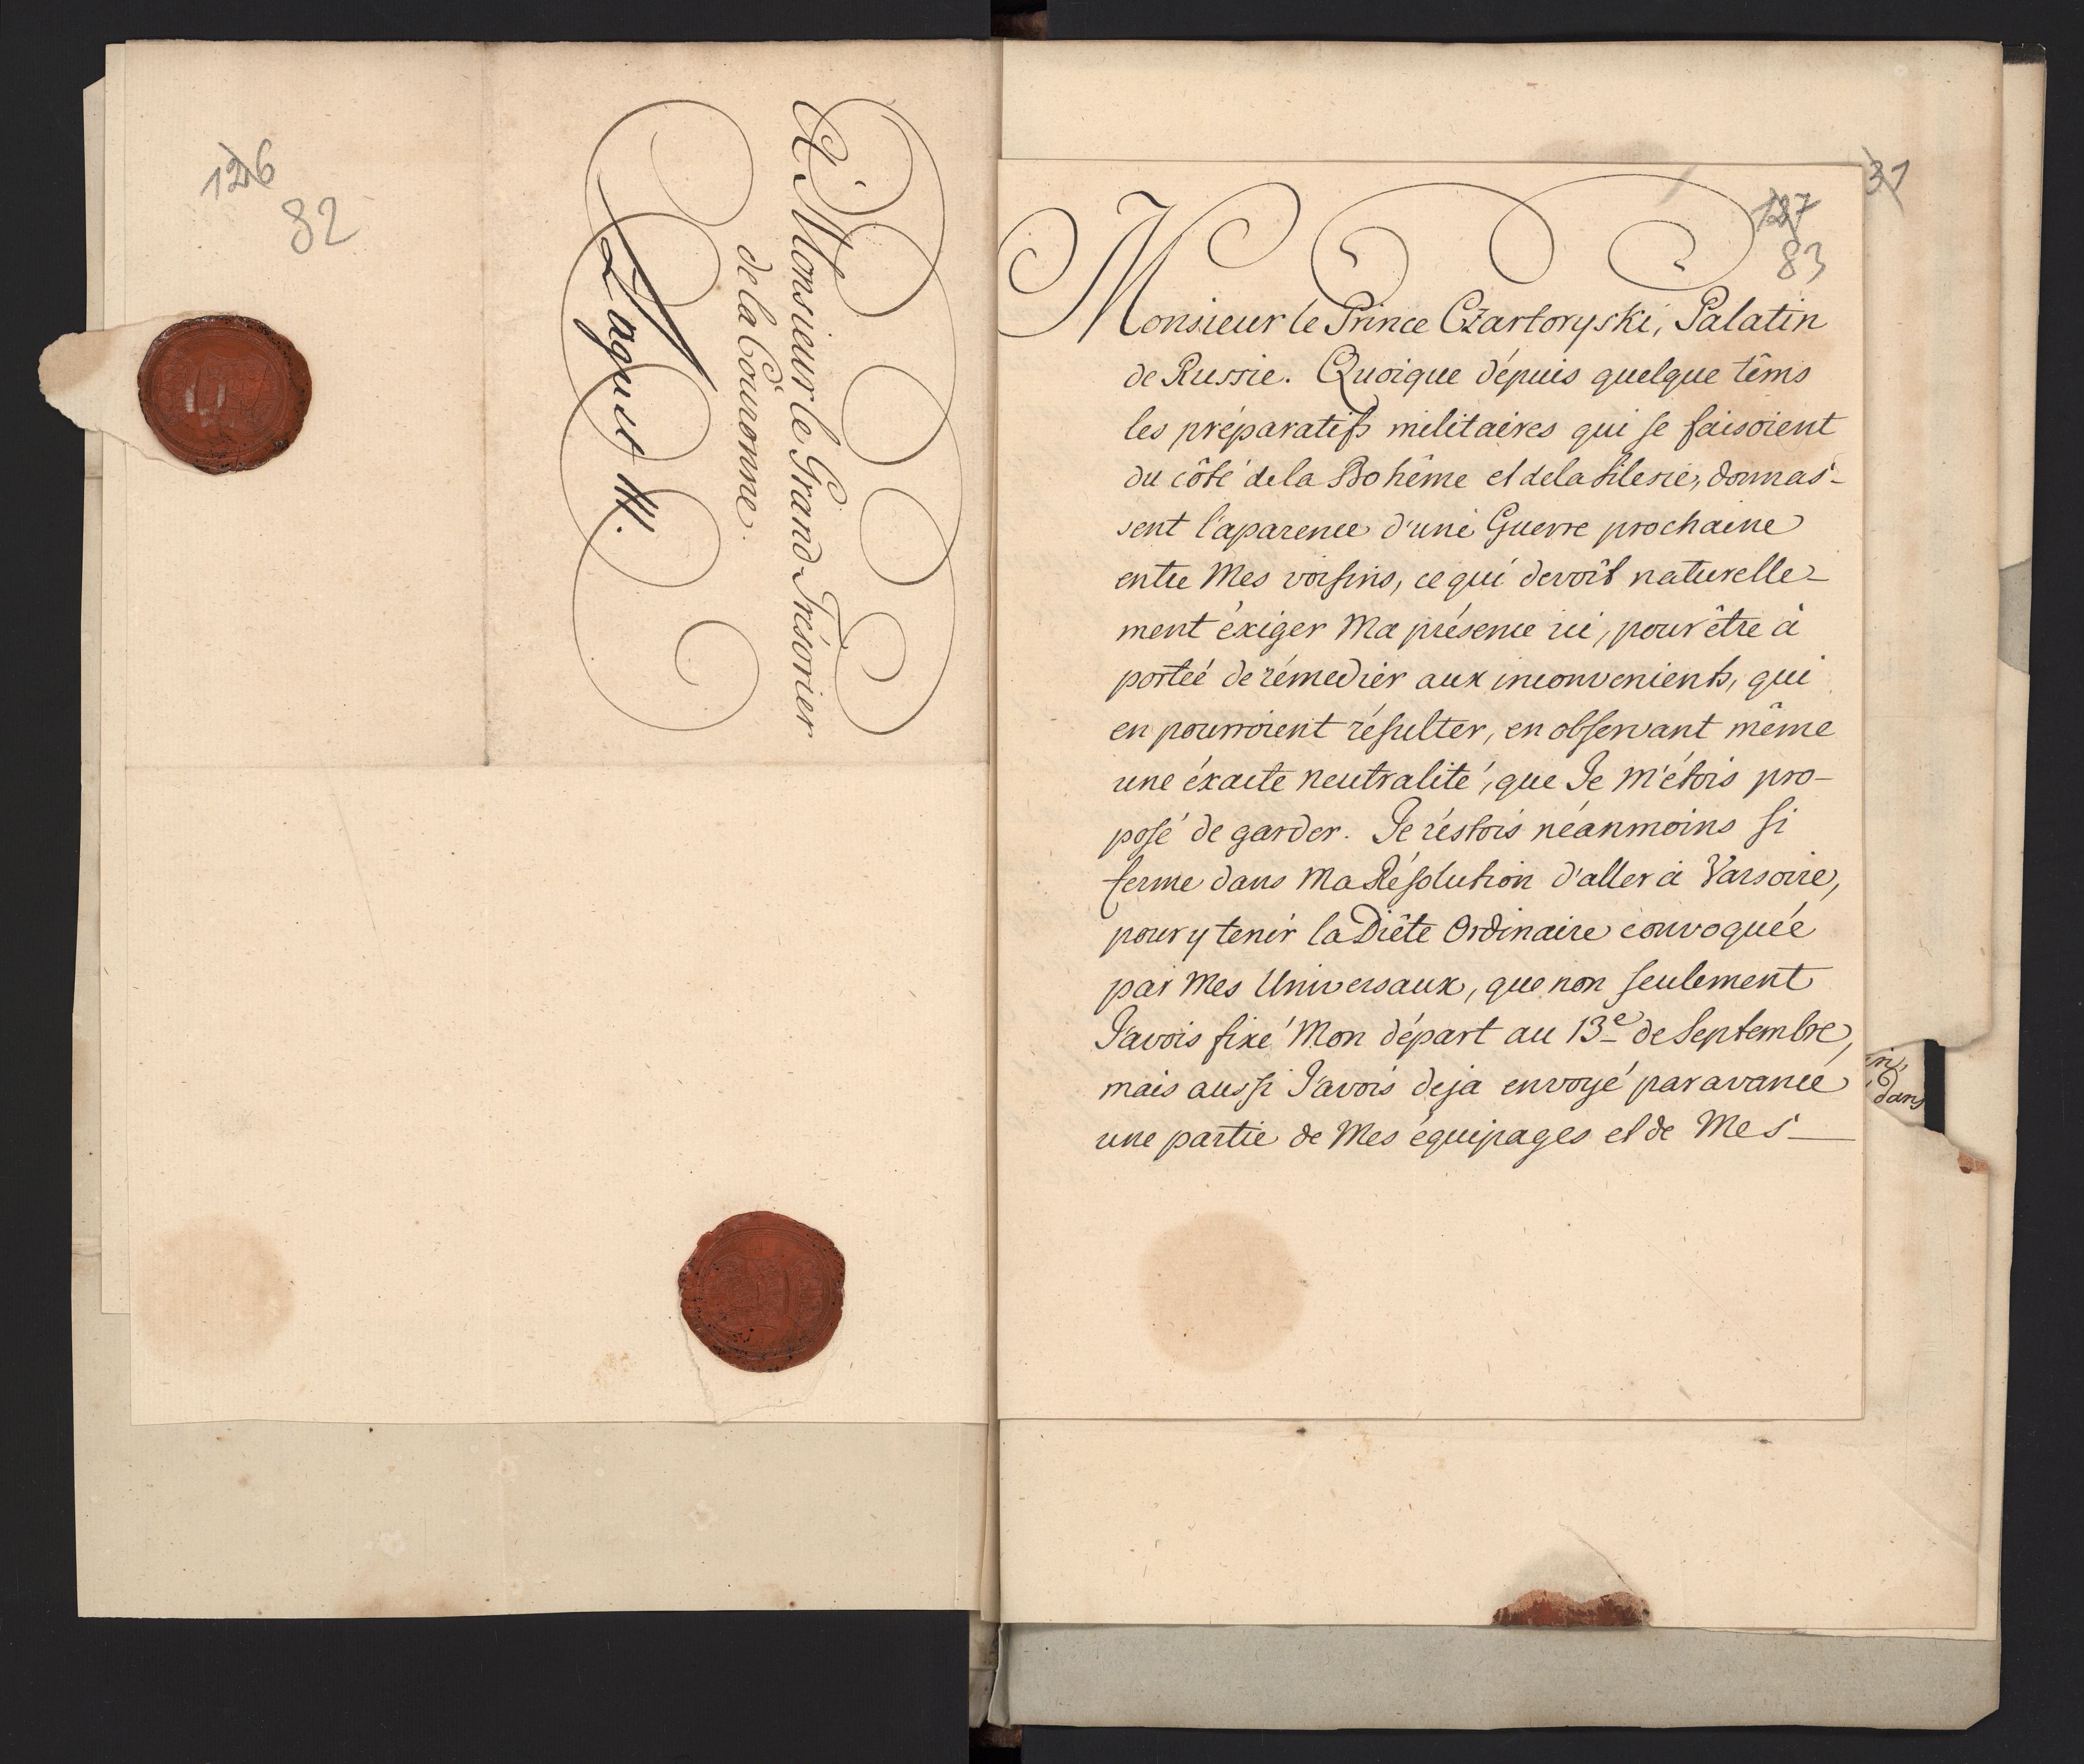 126
82
A Monsieur le Grand-Trésorier
de la Couronne.
August III.
31
127
83
Monsieur le Prince Czartoryski, Palatin
de Russie. Quoique dépuis quelque têms
les préparatifs militaires qui se faisoient
du côté de la Bohême et de la Silesie, donnas-
sent l'aparence d'une Guerre prochaine
entre Mes voisins, ce qui devoit naturelle-
ment éxiger Ma présence ici, pour être à
porteé de rémedier aux inconvenients, qui
en pourroient résulter, en observant même
une éxacte neutralité, que Je M'étois pro-
posé de garder. Je réstois néanmoins si
ferme dans Ma Résolution d'aller à Varsovie,
pour y tenir la Diête Ordinaire convoqueé
par Mes Universaux, que non seulement
J'avois fixé Mon départ au 13e de Septembre,
mais aussi J'avois deja envoyé par avance
une partie de Mes équipages et de Mes
dans